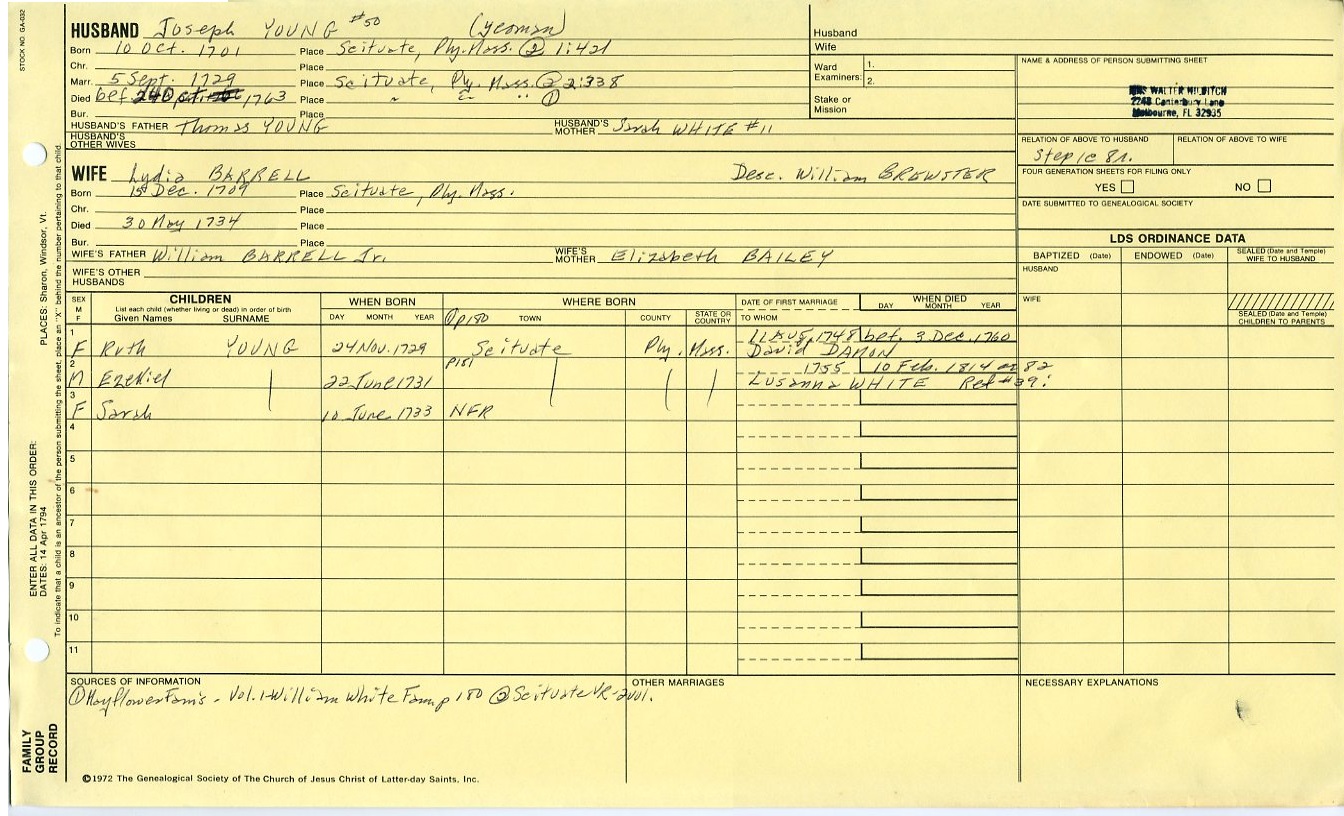 STOCK NO. GA-032
HUSBAND Joseph YOUNG #50 (yeoman)
Born 10 Oct. 1701 Place Scituate, Ply. Mass. ② 1:421
Chr. Place
Marr. 5 Sept. 1729 Place Scituate, Ply. Mass. ② 2:338
Died bef 1763 Place " " " ①
Bur. Place
HUSBAND'S FATHER Thomas YOUNG HUSBAND'S MOTHER Sarah WHITE #11
HUSBAND'S OTHER WIVES
Husband
Wife
Ward Examiners: 1.
2.
Stake or Mission
NAME & ADDRESS OF PERSON SUBMITTING SHEET
MRS WALTER
2248 Canterbury Lane
Melbourne, FL 32935
RELATION OF ABOVE TO HUSBAND RELATION OF ABOVE TO WIFE
Step 1c 8r.
FOUR GENERATION SHEETS FOR FILING ONLY
YES NO
DATE SUBMITTED TO GENEALOGICAL SOCIETY
WIFE Lydia BARRELL Desc. William BREWSTER
Born 15 Dec. 1709 Place Scituate, Ply. Mass.
Chr. Place
Died 30 May 1734 Place
Bur. Place
WIFE'S FATHER William BARRELL Jr. WIFE'S MOTHER Elizabeth BAILEY
WIFE'S OTHER HUSBANDS
LDS ORDINANCE DATA
BAPTIZED (Date) ENDOWED (Date) SEALED (Date and Temple) WIFE TO HUSBAND
HUSBAND
WIFE
SEALED (Date and Temple) CHILDREN TO PARENTS
SEX M F CHILDREN List each child (whether living or dead) in order of birth Given Names SURNAME
WHEN BORN DAY MONTH YEAR
WHERE BORN ① p180 TOWN COUNTY STATE OR COUNTRY
DATE OF FIRST MARRIAGE TO WHOM
WHEN DIED DAY MONTH YEAR
1 11 AUG. 1748 bef. 3 Dec. 1760
F Ruth YOUNG 24 Nov. 1729 Scituate Ply. Mass. David DAMON
2 p181 1755 10 Feb. 1814 ae 82
M Ezekiel 22 June 1731 Lusanna WHITE Ref #39!
3
F Sarah 10 June 1733 NFR
4
5
6
7
8
9
10
11
SOURCES OF INFORMATION
① Mayflower Fam's - Vol. 1-William White Fam p 180 ② Scituate VR-2vol.
OTHER MARRIAGES
NECESSARY EXPLANATIONS
©1972 The Genealogical Society of The Church of Jesus Christ of Latter-day Saints, Inc.
FAMILY GROUP RECORD
ENTER ALL DATA IN THIS ORDER:
DATES: 14 Apr 1794
PLACES: Sharon, Windsor, Vt.
To indicate that a child is an ancestor of the person submitting the sheet, place an "X" behind the number pertaining to that child.